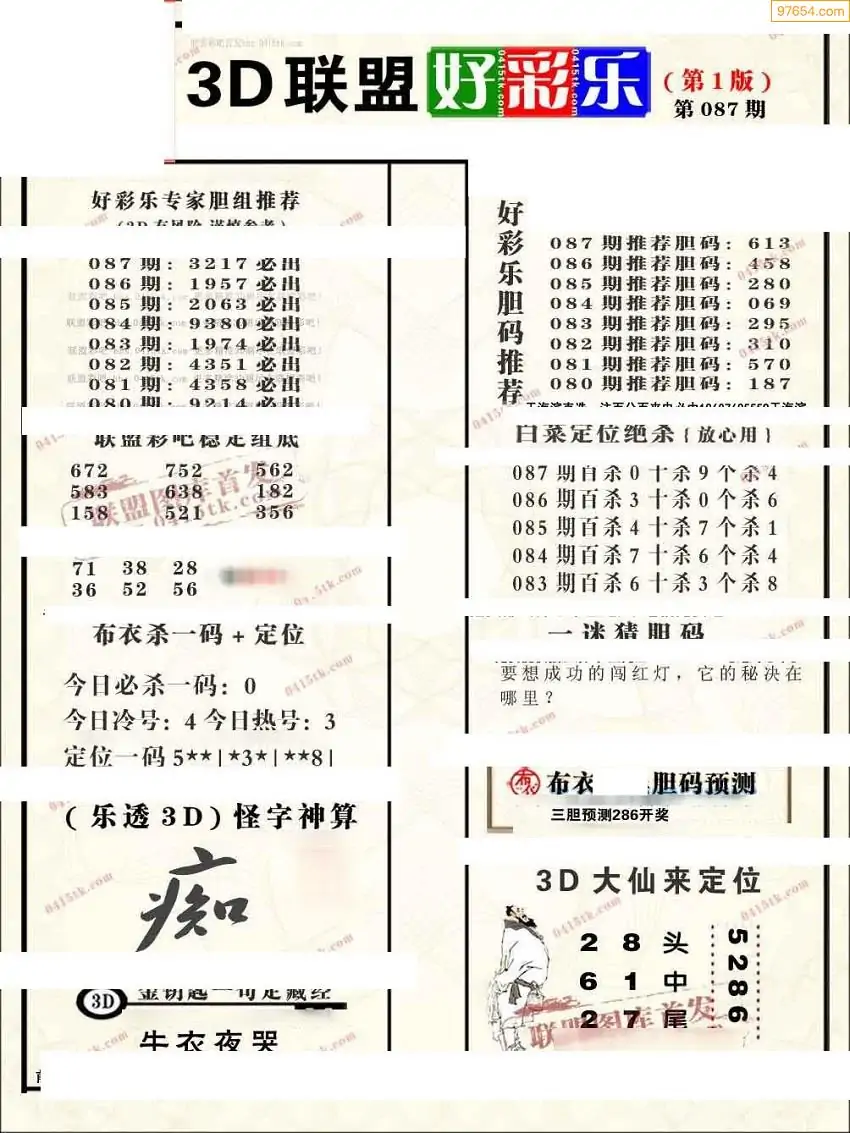 97654.com
3D联盟好彩乐(第1版)
第087期
好彩乐专家胆组推荐
087期：3217必出
086期：1957必出
085期：2063必出
084期：9380必出
083期：1974必出
082期：4351必出
081期：4358必出
080期：9214必出
联盟彩吧稳定组底
672 752 562
583 638 182
158 521 356
71 38 28
36 52 56
布衣杀一码+定位
今日必杀一码：0
今日冷号：4今日热号：3
定位一码5**|*3*|**8|
(乐透3D)怪字神算
痴
3D
金钥匙一句定藏经
牛衣夜哭
好彩乐胆码推荐
087期推荐胆码：613
086期推荐胆码：458
085期推荐胆码：280
084期推荐胆码：069
083期推荐胆码：295
082期推荐胆码：310
081期推荐胆码：570
080期推荐胆码：187
白菜定位绝杀{放心用}
087期百杀0十杀9个杀4
086期百杀3十杀0个杀6
085期百杀4十杀7个杀1
084期百杀7十杀6个杀4
083期百杀6十杀3个杀8
一谜猜胆码
要想成功的闯红灯，它的秘决在
哪里？
布衣 胆码预测
三胆预测286开奖
3D大仙来定位
2 8 头
6 1 中
2 7 尾
5286
联盟图库首发
0415tk.com